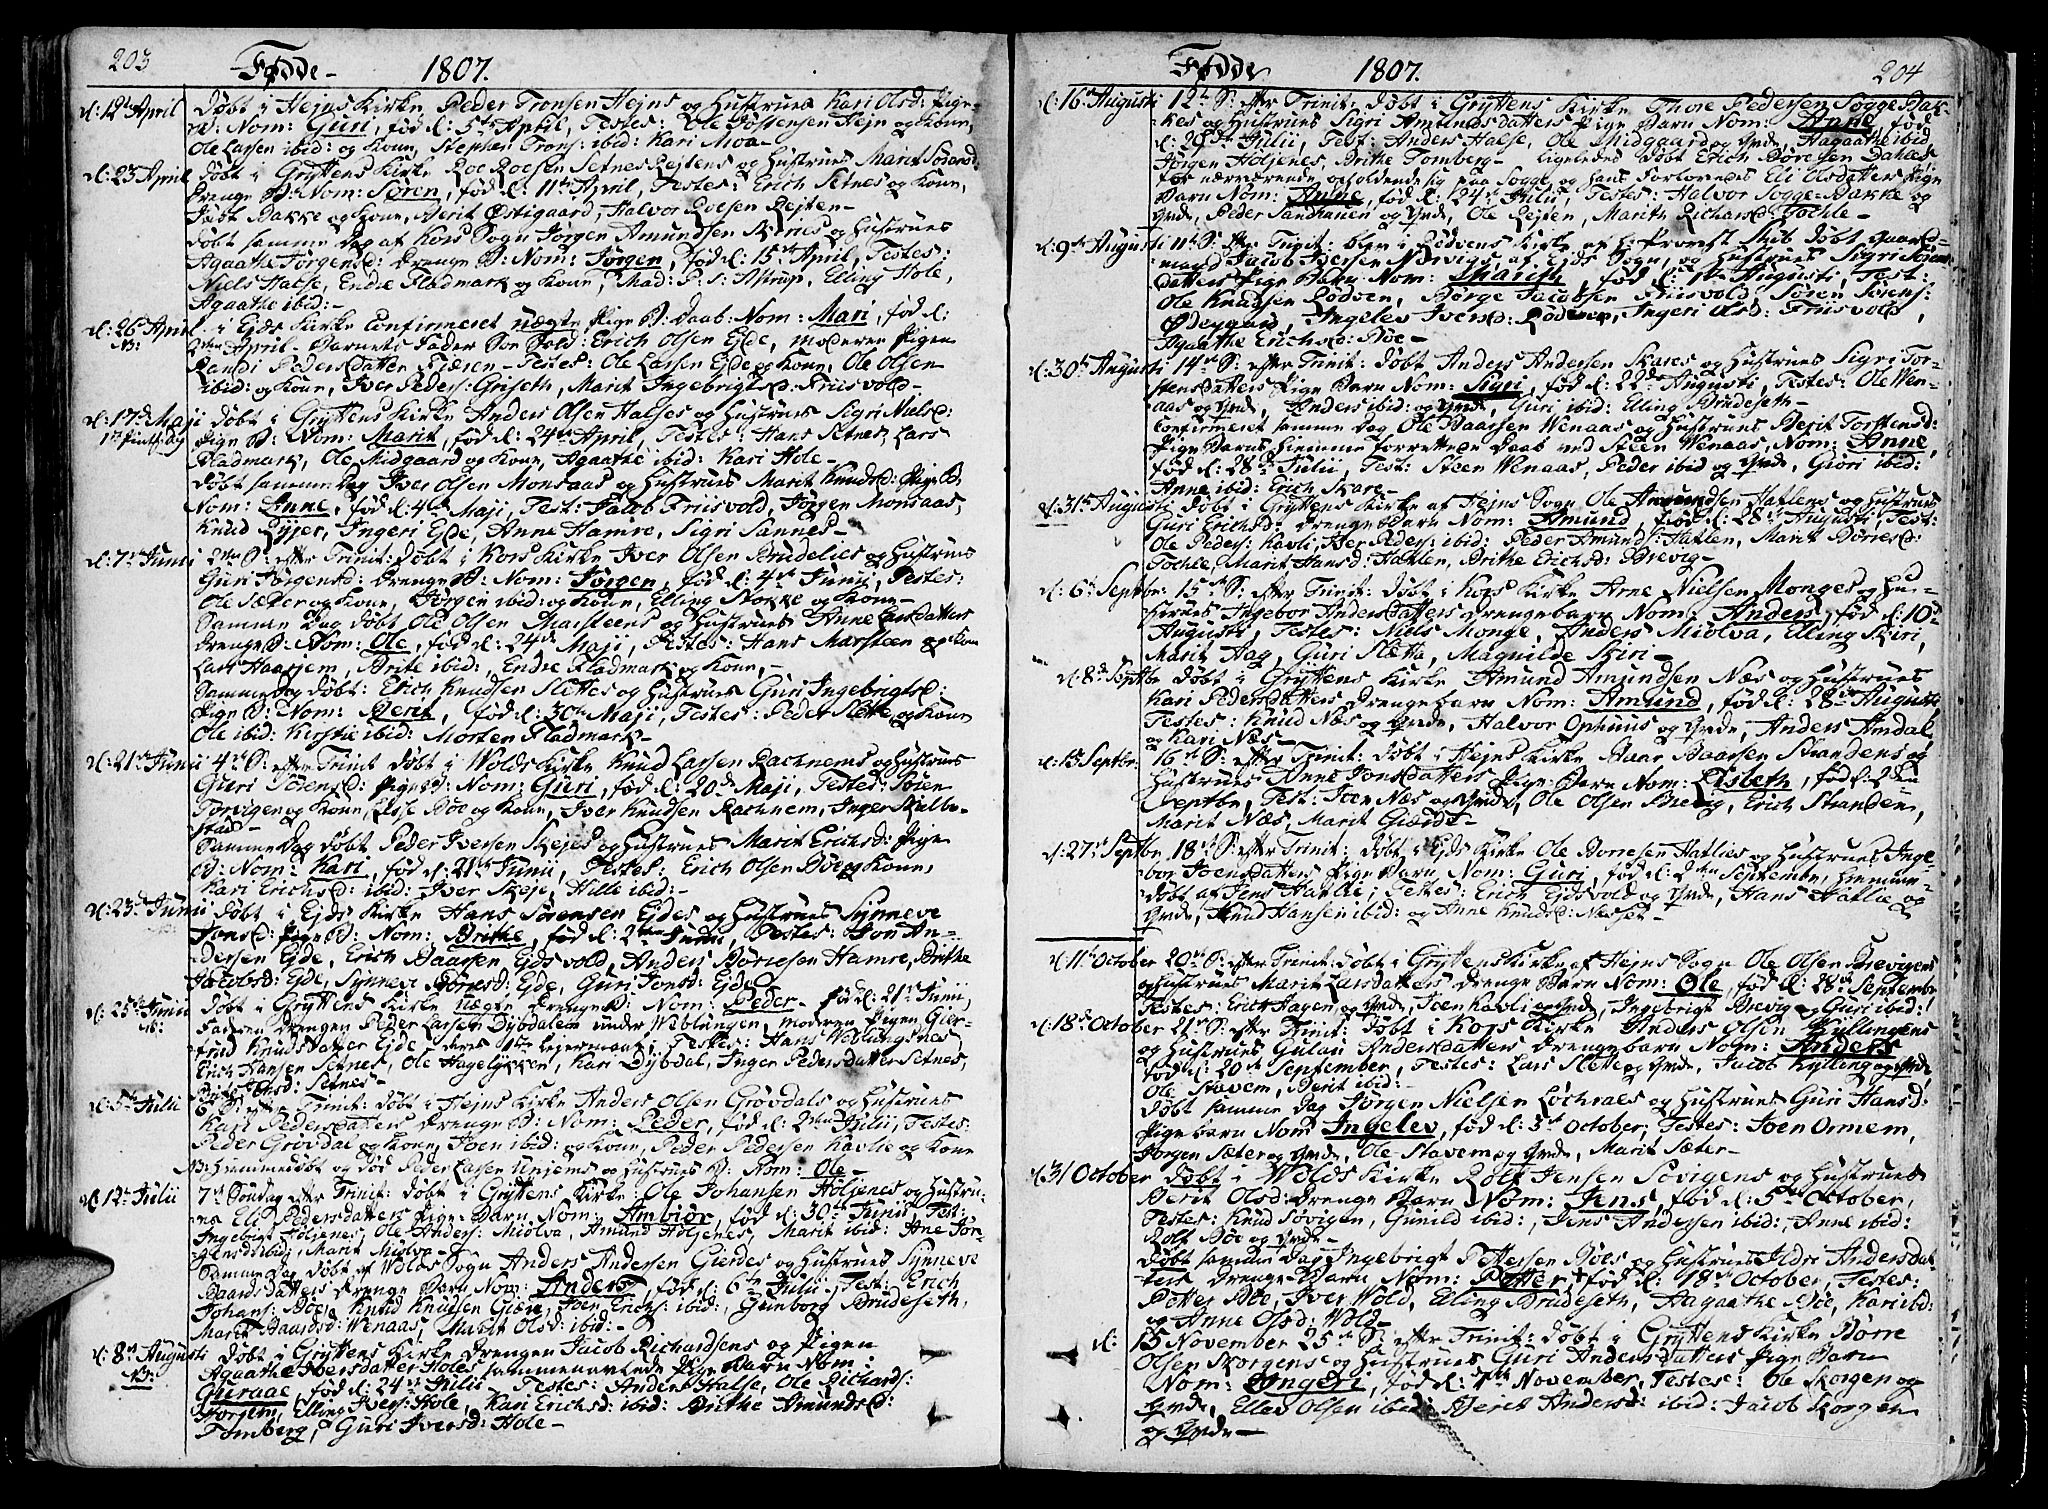 203
Fødde 1807.
d: 12te April Døbt i Hejns Kirke Peder Tronsen Hejns og Hustrues Kari Olsd: Pige
B: Nom: Guri, fød d: 5te April, Testes: Ole Hejn og Kone,
Ole Larsen ibid: og Kone, Stephen Trons: ibid: Kari Moa
d: 23 April Døbt i Gryttens Kirke Roe Roesen Setnes Rejtens og Hustrues Marit
Drenge B: Nom: Søren, fød d: 11te April, Testes: Erich Setnes og Kone,
Bakke og Kone, Berit Østigaard, Halvor Roesen Rejten
Døbt samme Dag af Kors Sogn Jørgen Amundsen Skiries og Hustrues
Agaathe Jørgensd: Drenge B: Nom: Jørgen, fød d: 15te April, Testes:
Niels Halse, Endre Fladmark og Kone, Mad: P: S: Astrup, Elling Hole,
Agaathe ibid:
d: 26 April
NB: i Ejds Kirke Confirmeret uægte Pige B: Daab: Nom: Mari, fød d:
April Barnets Fader Erich Olsen Ejde, moderen Pigen
Randi Pedersdatter Fiæren Testes: Ole Larsen Ejde og Kone, Ole Olsen
ibid: og Kone, Iver Peders: Griseth, Marit Ingebrigtsd: Friisvold
d: 17de Maji Døbt i Gryttens Kirke Anders Olsen Halses og Hustrues Sigri Nielsd:
Pige B: Nom: Marit, fød d: 24de April, Testes: Hans Setnes, Lars
Fladmark, Ole Midgaard og Kone, Agaathe ibid: Kari Hole
Døbt samme Dag Iver Olsen Monsaas og Hustrues Marit Knudsd: Pige B:
Nom: Anne, fød d: 4de Maji, Test: Jacob Friisvold, Jørgen Monsaas,
Knud Ryjer, Ingeri Ejde, Anne Hamre, Sigri Sannes
d: 7de Junii 2den S: efter Trinit: Døbt i Kors Kirke Iver Olsen Brudelies og Hustrues
Guri Jørgensd: Drenge B: Nom: Jørgen, fød d: 4de Junii, Testes:
Ole Sæter og Kone, Jørgen ibid: og Kone, Elling Stokke og Kone
Samme Dag døbt Ole Olsen Marsteens og Hustrues Anne Larsdatters
Drenge B: Nom: Ole, fød d: 24de Maji, Testes: Hans Marsteen og Kone
Lars Haarjem, Brite ibid:, Endre Fladmark og Kone,
Samme Dag døbt: Erich Knudsen Slettes og Hustrues Guri Ingebrigtsd:
Pige B: Nom: Berit, fød d: 30te Maji, Testes: Peder Slette og Kone
Ole ibid: Kirstie ibid: Morten Fladmark
d: 21de Junii 4de S: efter Trinit Døbt i Wolds Kirke Knud Larsen Rachnems og Hustrues
Guri Sørensd: Pige B: Nom: Guri, fød d: 20de Maji, Testes: Søren
Torvigen og Kone, Lasse Bøe og Kone, Iver Knudsen Rachnem, Inger Skielbo
stad
Samme Dag døbt Peder Iversen Skejes og Hustrues Marit Erichsd: Pige
B: Nom: Kari, fød d: 21de Junii, Testes: Erich Olsen Bøe og Kone,
Kari Erichsd: ibid: Iver Skeje, Hille ibid:
d: 23de Junii Døbt i Ejds Kirke Hans Sørensen Ejdes og Hustrues Synneve
Jonsd: Pige B: Nom: Brithe, fød d: 2den Junii, Testes: Jon An-
dersen Ejde, Erich Baarsen Ejdsvold, Anders Børresen Hamre, Brithe
Jacobsd: Ejde, Synneve Ejde, Guri Jonsd: Ejde
d: 25de Junii
NB: Døbt i Gryttens Kirke uægte Drenge B: Nom: Peder fød d: 21de Junii,
Faderen Drengen Peder Larsen Dybdalen under Weblungen, moderen Pigen Gier-
trud Knudsdatter Ejde, deres 1te Lejermaal, Testes: Hans Weblungsnes
Erich Hansen Setnes, Ole Hagelykken, Kari Dybdal, Inger Pedersdatter Setnes,
Setnes
d: 5te Julii 6te S: efter Trinit: Døbt i Hejns Kirke Anders Olsen Grøvdals og Hustrues
Kari Pedersdatters Drenge B: Nom: Peder, fød d: 2den Julii, Testes:
Peder Grøvdal og Kone, Joen ibid: og Kone, Peder Pedersen Kavlie og Kone
NB: Hiemmedøbt og død Peder Larsen Unjems og Hustrues B: Nom: Ole
d: 12te Julii 7de Søndag efter Trinit: Døbt i Gryttens Kirke Ole Johansen Høljenes og Hustru-
es Eli Pedersdatters Pige Barn Nom: Ambiør, fød d: 30te Junii, Test:
Ingebrigt Høljenes, Ole Anders: Miølva, Amund Høljenes, Marit ibid: Ane Jør-
gensd: ibid:, Marit Miølva
Samme Dag Døbt af Wolds Sogn Anders Andersen Gierdes og Hustrues Synneve
Baardsdatters Drenge Barn Nom: Anders, fød d: 6te Julii, Test: Erich
Johans: Bøe, Knud Knudsen Giøre, Joen Erichs: ibid:, Gunborg Brudeseth,
Marit Baardsd: Wenaas, Marit Olsd: ibid:
d: 8de Augusti
NB: Døbt i Gryttens Kirke Drengen Jacob Richardsens og Pigen
Agaathe Iversdatter Holes sammenavlede Pige Barn Nom:
Guraae, fød d: 24de Julii, Testes: Anders Halse, Ole Richards:
Horjem, Elling Ivers: Hole, Kari Erichsd: ibid: Brithe Amundsd:
Tomberg, Guri Iversd: Hole
204
Fødde 1807.
d: 16de Augusti 12te S: efter Trinit: Døbt i Gryttens Kirke Thore Pedersen Sogge Bak-
kes og Hustrues Sigri Amundsdatters Pige Barn Nom: Anne, fød
d: 29de Julii, Test: Anders Halse, Ole Midgaard og Qvde, Hagaathe ibid
Jørgen Høljenes, Brithe Tomberg. Ligeledes Døbt Erich Børresen Dahles
for nærværende opholdende sig paa Sogge og hans Forlovedes Eli Olsdatters Pige
Barn Nom: Anne, fød d: 24de Julii, Testes: Halvor Sogge-Bakke og
Qvde, Peder Sandhauen og Qvde, Ole Rejten, Marith Richarsd: Tochle
d: 9de Augusti 11te S: efter Trinit: blev i Rødvens Kirke af H: Provst Stub døbt gaard-
mand Jacob Iversen Nærvigs af Ejds Sogn, og Hustrues Sigri Sørens-
datters Pige Barn Nom: Marith, fød d: 1te Augusti, Test:
Ole Knudsen Rødven, Børge Jacobsen Friisvold, Søren Sørens:
Ødegaard, Ingelev Iversd: Rødven, Ingeri Olsd: Friisvold,
Agaathe Erichsd: Bøe
d: 30te Augusti 14de S: efter Trinit: Døbt Anders Andersen Skares og Hustrues Sigri Tor-
stensdatters Pige Barn Nom: Sigri, fød d: 22de Augusti, Testes: Ole Wen-
aas og Qvde, Anders ibid: og Qvde, Guri ibid: Elling Brudeseth
Confirmeret samme Dag Ole Baarsen Wenaas og Hustrues Berit Torstensd:
Pige Barns hiemme forrettede Daab ved Steen Wenaas, Nom: Anne,
fød d: 28de Julii, Test: Steen Wenaas, Peder ibid og Qvde, Guri ibid:
Anne ibid: Erich Skare
d: 31te Augusti Døbt i Gryttens Kirke af Hejns Sogn Ole Amundsen Hatlens og Hustrues
Guri Erichsd: Drenge Barn Nom: Amund, fød d: 28de Augusti, Test:
Ole Peders: Kavli, Iver Peders: ibid: Peder Amunds: Hatlen, Marit Børresd:
Tochle, Marit Hansd: Hatlen, Brithe Erichsd: Brevig
d: 6te Septbr: 15de S: efter Trinit: Døbt i Kors Kirke Arne Nielsen Monges og Hu-
strues Ingebor Andersdatters Drengebarn Nom: Anders, fød d: 10de
Augusti, Testes: Niels Monge, Anders Miølva, Elling Skiri,
Marit Hag, Guri Sletta, Magnilde Skiri
d: 8de Septbr Døbt i Gryttens Kirke Amund Amundsen Næs og Hustrues
Kari Pedersdatters Drengebarn Nom: Amund, fød d: 28de Augusti,
Testes: Knud Næs og Qvde, Halvor Ophuus og Qvde, Anders Amdal,
og Kari Næs
d: 13 Septbr: 16te S: efter Trinit: Døbt i Hejns Kirke Baarsen Strandens og
Hustrues Anne Jonsdatters Pige Barn Nom: Elsleth, fød d: 2den
Septbr, Test: Joen Næs og Qvde, Ole Olsen Brevig, Erich Stranden,
Marit Næs, Marit Gierde
d: 27de Septbr, 18de S: efter Trinit: Døbt i Ejds Kirke Ole Børresen Hatlies og Hustrues Inge-
bor Joensdatters Pige Barn Nom: Guri, fød d: Septembr, hiemme-
døbt af Jens Hatlie; Testes: Erich Ejdsvold og Qvde, Hans Hatlie og
Qvde, Knud Hansen ibid: og Anne Knudsd: Nærset
d: 11te October 20de S: efter Trinit: Døbt i Gryttens Kirke af Hejns Sogn Ole Olsen Brevigens
og Hustrues Marit Larsdatters Drenge Barn Nom: Ole, fød d: 28de September
Testes: Erich Hagen og Qvde, Joen Kavli og Qvde, Ingebrigt Brevig og Guri ibid:
d: 18de October 21de S: efter Trinit: Døbt i Kors Kirke Anders Olsen Kyllingens
og Hustrues Gulau Andersdatters Drengebarn Nom: Anders
fød d: 20de September, Testes: Lars Slette og Qvde, Jacob Kylling og Qvde
Ole Stavem, Berit ibid:
Døbt samme Dag Jørgen Nielsen Lochnæs og Hustrues Guri Hansd:
Pige barn Nom Ingelev, fød d: 3de October; Testes: Joen Ormem,
Jørgen Sæter og Qvde, Ole Stavem og Qvde, Marit Sæter
d: 31 October Døbt i Wolds Kirke Rolf Jensen Søvigens og Hustrues
Berit Olsd: Drenge Barn Nom: Jens, fød d: 5te October,
Testes: Knud Søvigen, Gunild ibid:, Jens Andersen ibid:, Anne ibid:
Rolf Bøe og Qvde
Døbt samme Dag Ingebrigt Pettersen Bøes og Hustrues Ildri Andersdat-
ters Drenge Barn Nom: Petter, fød d: 18de October, Testes:
Petter Bøe, Iver Wold, Elling Brudeseth, Hagaathe Bøe, Kari ibid:
og Anne Olsd: Wold
d: 15 November 25de S: efter Trinit: Døbt i Gryttens Kirke Børre
Olsen Skorgens og Hustrues Guri Andersdatters Pige Barn
Nom: Ingeri, fød d: November, Testes: Ole Skorgen og
Qvde, Ellev Olsen ibid: Beret Andersd: ibid: Jacob Skorgen
og Qvde